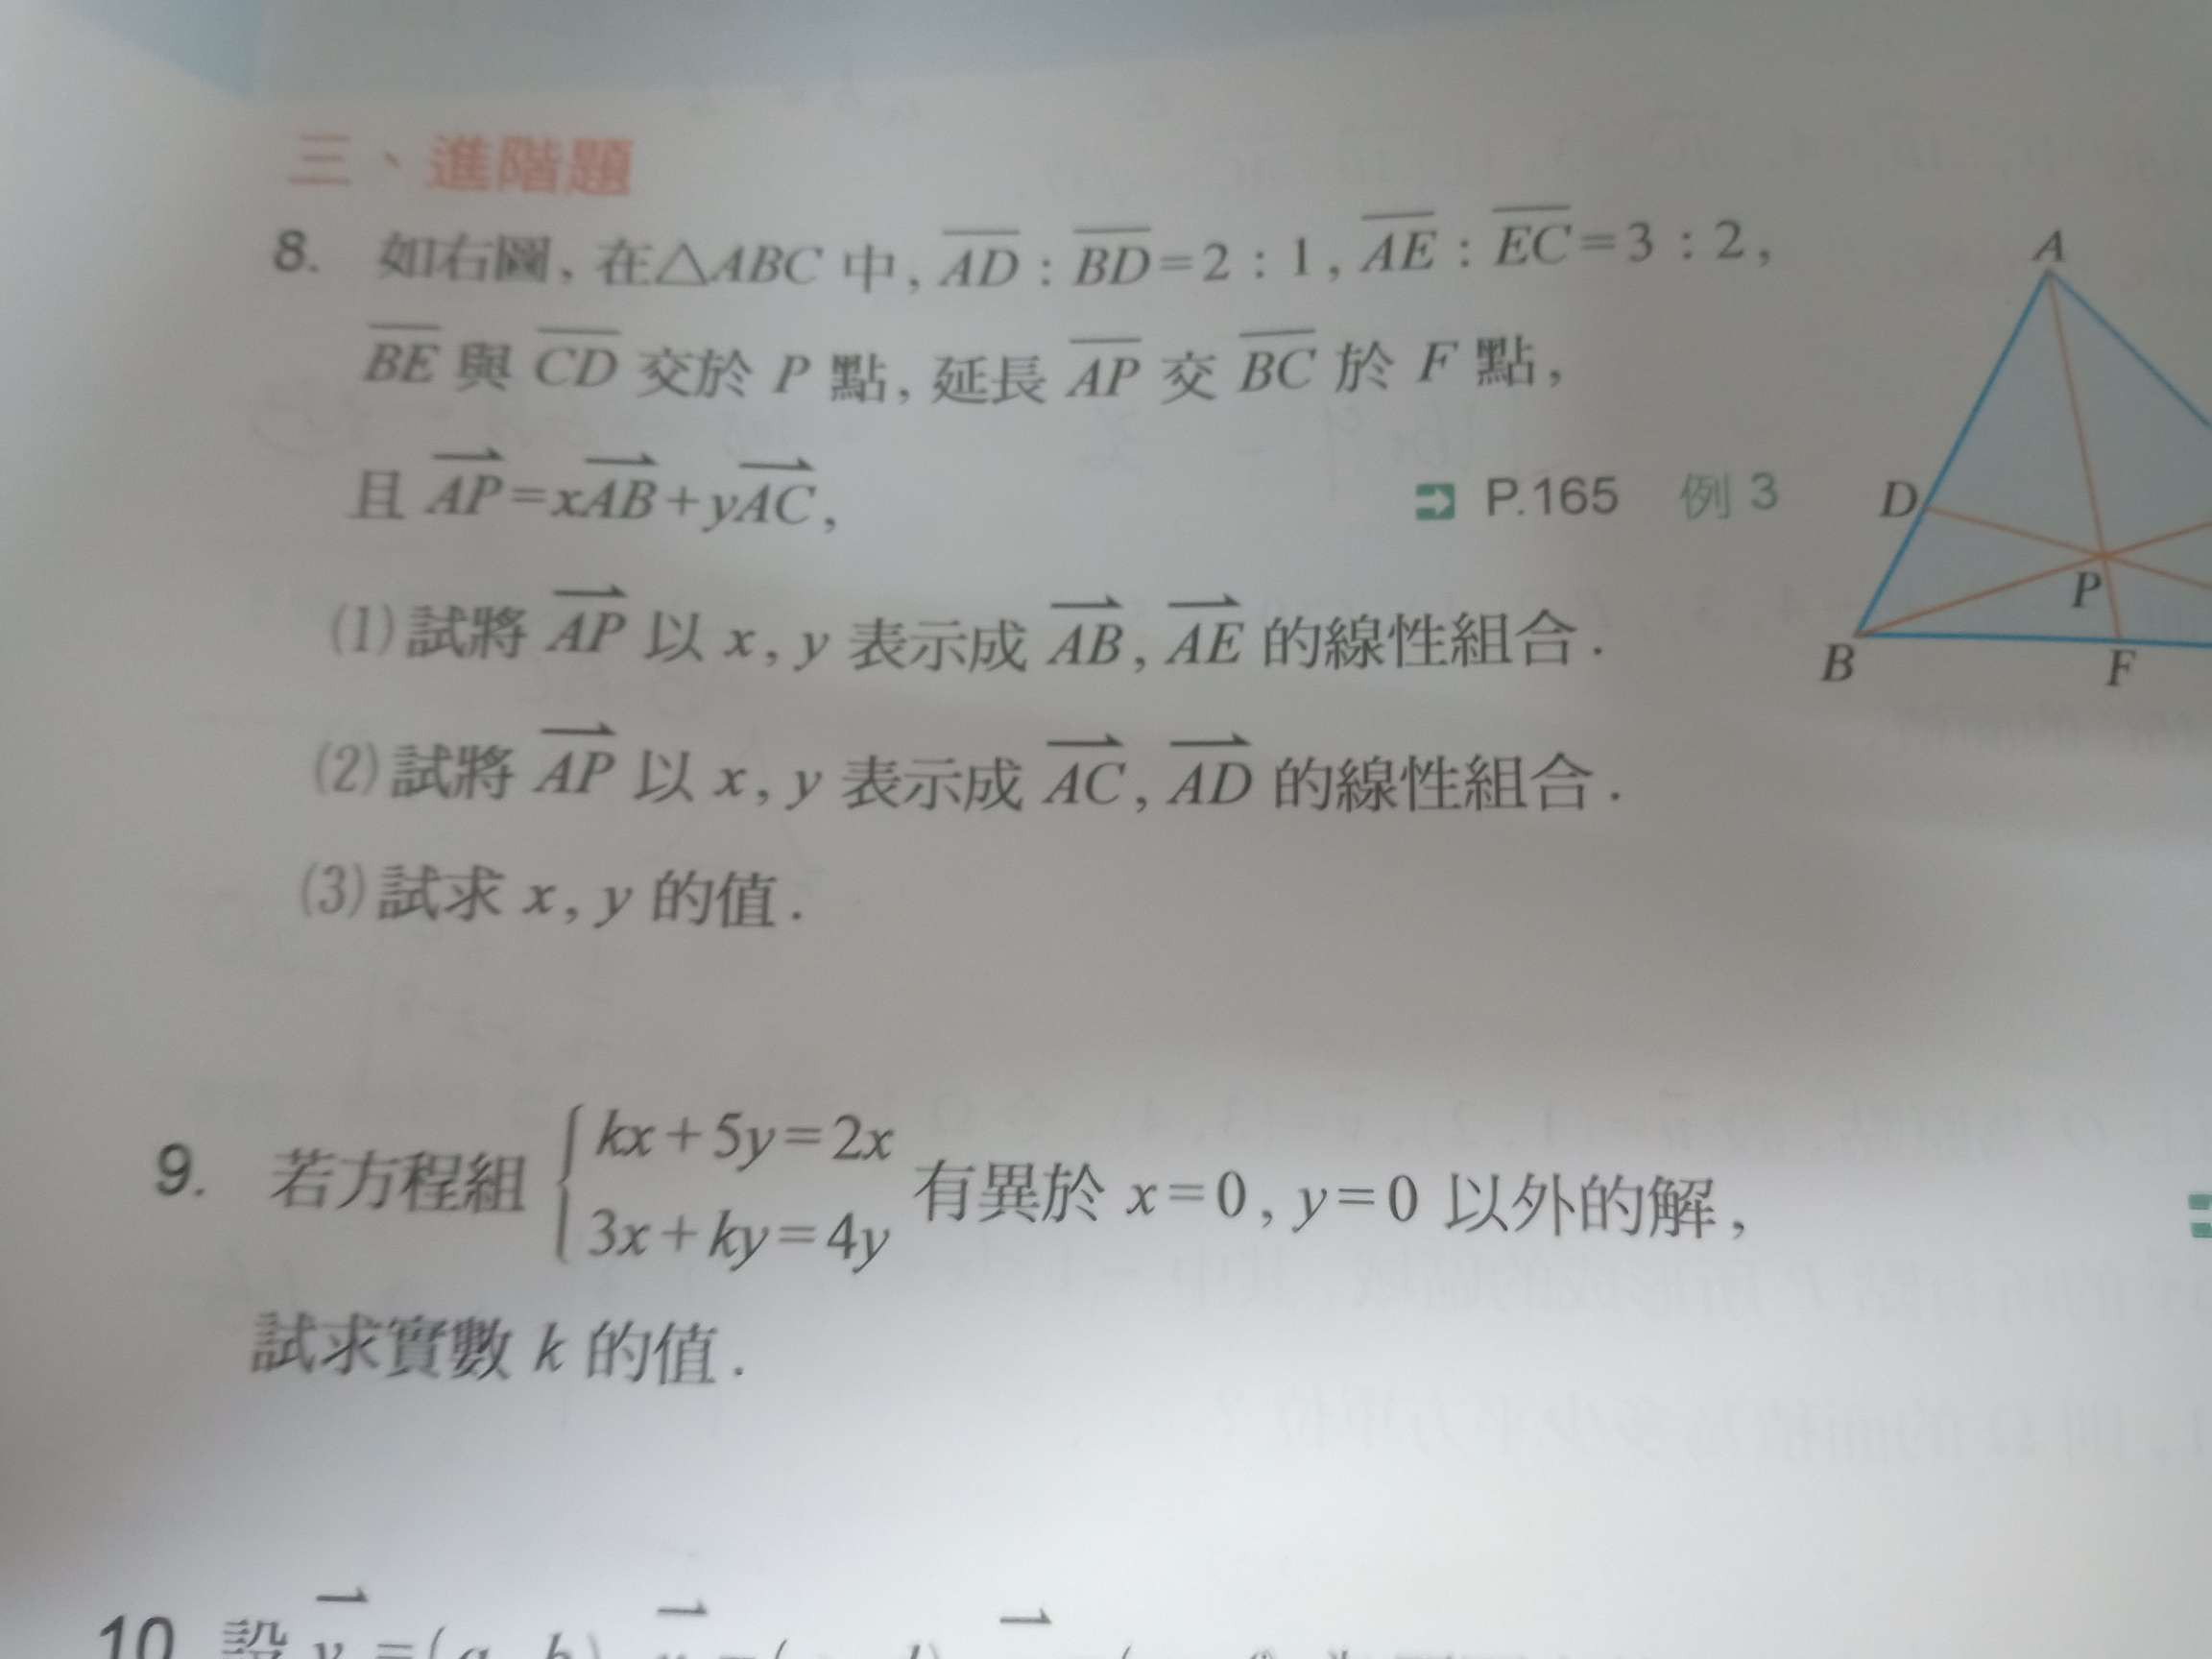 三、進階題
8. 如右圖, 在△ABC 中, AD : BD=2 : 1, AE : EC=3 : 2,
BE 與 CD 交於 P 點, 延長 AP 交 BC 於 F 點,
且 AP=xAB+yAC,
P.165 例 3
(1)試將 AP 以 x, y 表示成 AB, AE 的線性組合.
(2)試將 AP 以 x, y 表示成 AC, AD 的線性組合.
(3)試求 x, y 的值.
A
D
P
B
F
9. 若方程組 { kx+5y=2x
3x+ky=4y
有異於 x=0, y=0 以外的解,
試求實數 k 的值.
10 設